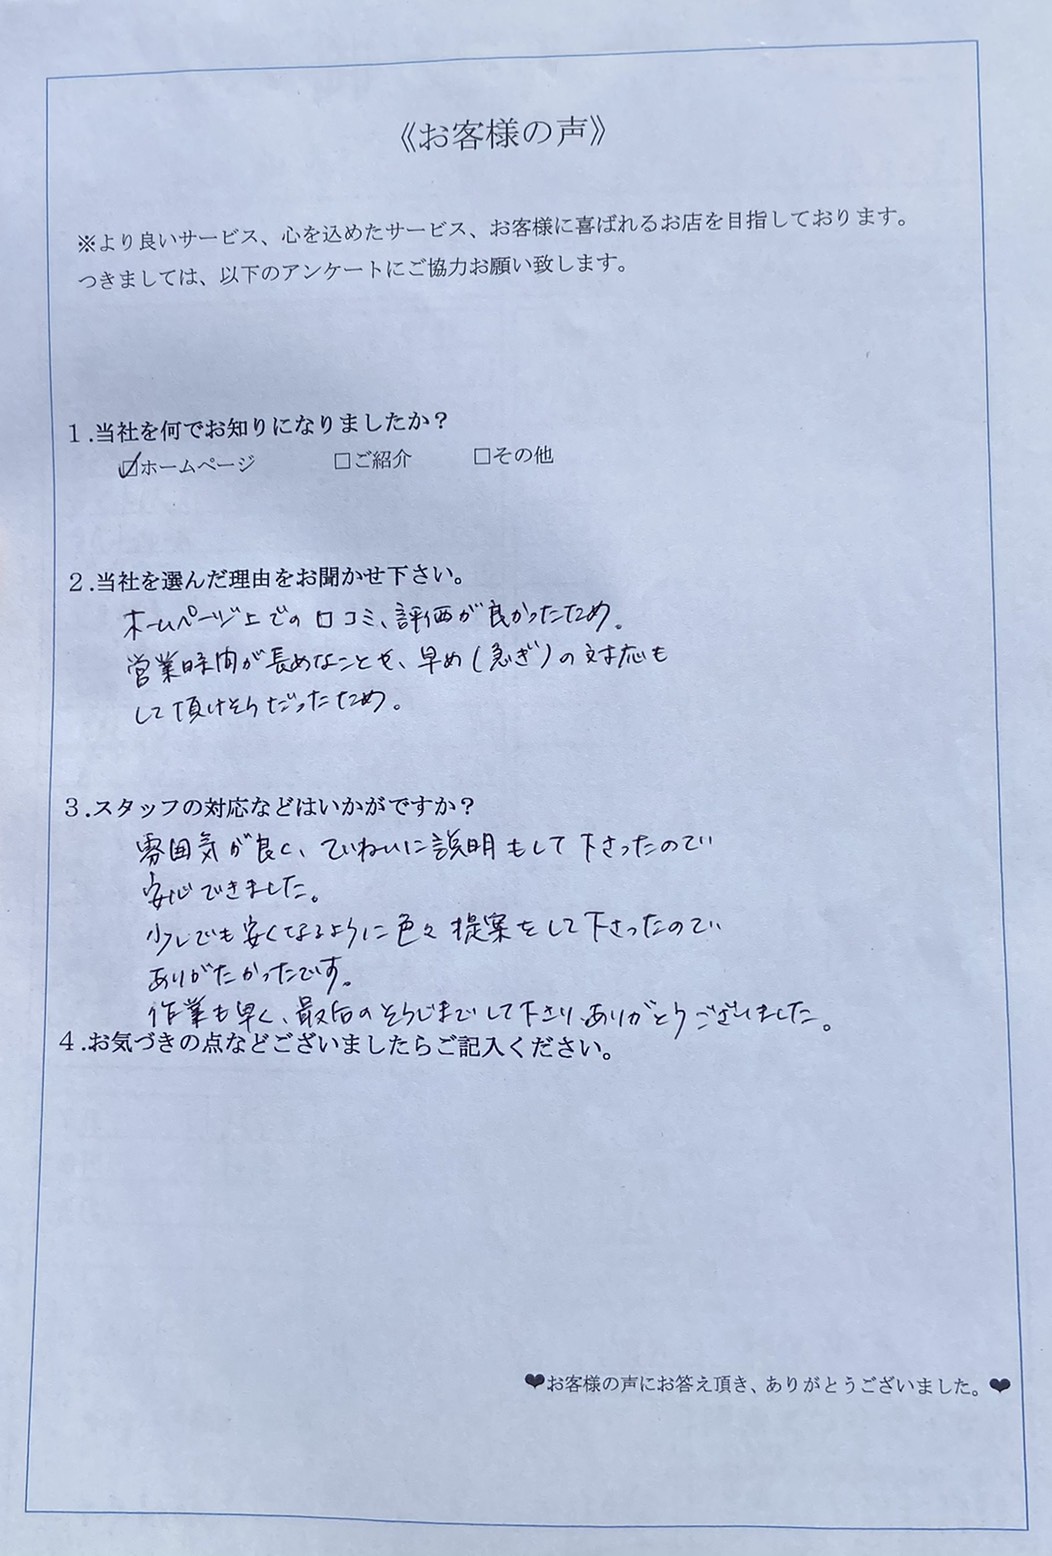 《お客様の声》
※より良いサービス、心を込めたサービス、お客様に喜ばれるお店を目指しております。
つきましては、以下のアンケートにご協力お願い致します。
１.当社を何でお知りになりましたか？
☑ホームページ □ご紹介 □その他
２.当社を選んだ理由をお聞かせ下さい。
ホームページ上での口コミ、評価が良かったため。
営業時間が長めなことや、早め（急ぎ）の対応も
して頂けそうだったため。
３.スタッフの対応などはいかがですか？
雰囲気が良く、ていねいに説明もして下さったので
安心できました。
少しでも安くなるように色々提案をして下さったので
ありがたかったです。
作業も早く、最后のそうじまでして下さり、ありがとうございました。
４.お気づきの点などございましたらご記入ください。
❤お客様の声にお答え頂き、ありがとうございました。❤